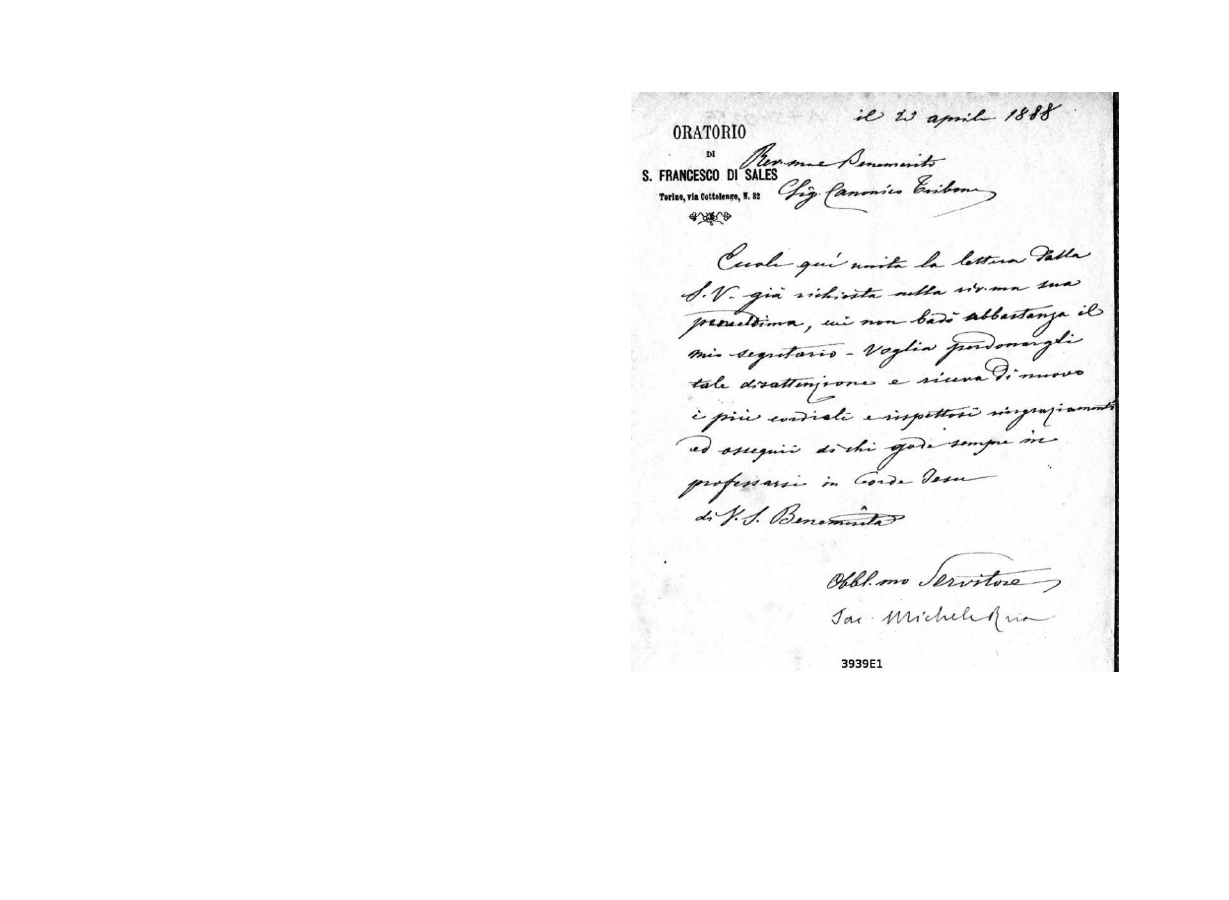 il 23 aprile 1888
ORATORIO
DI
S. FRANCESCO DI SALES
Torino, via Cottolengo, N. 32
Rev.mo e Benemerito
Sig. Canonico Tribone
Eccole qui unita la lettera dalla
S. V. già richiesta nella riv.ma sua
, cui non badò abbastanza il
mio segretario - Voglia perdonargli
tale disattenzione e riceva di nuovo
i più cordiali e rispettosi ringraziamenti
ed ossequii di chi gode sempre in
professarsi in Corde Jesu
di V. S. Benemerita
Obbl.mo Servitore
Sac. Michele Rua
3939E1